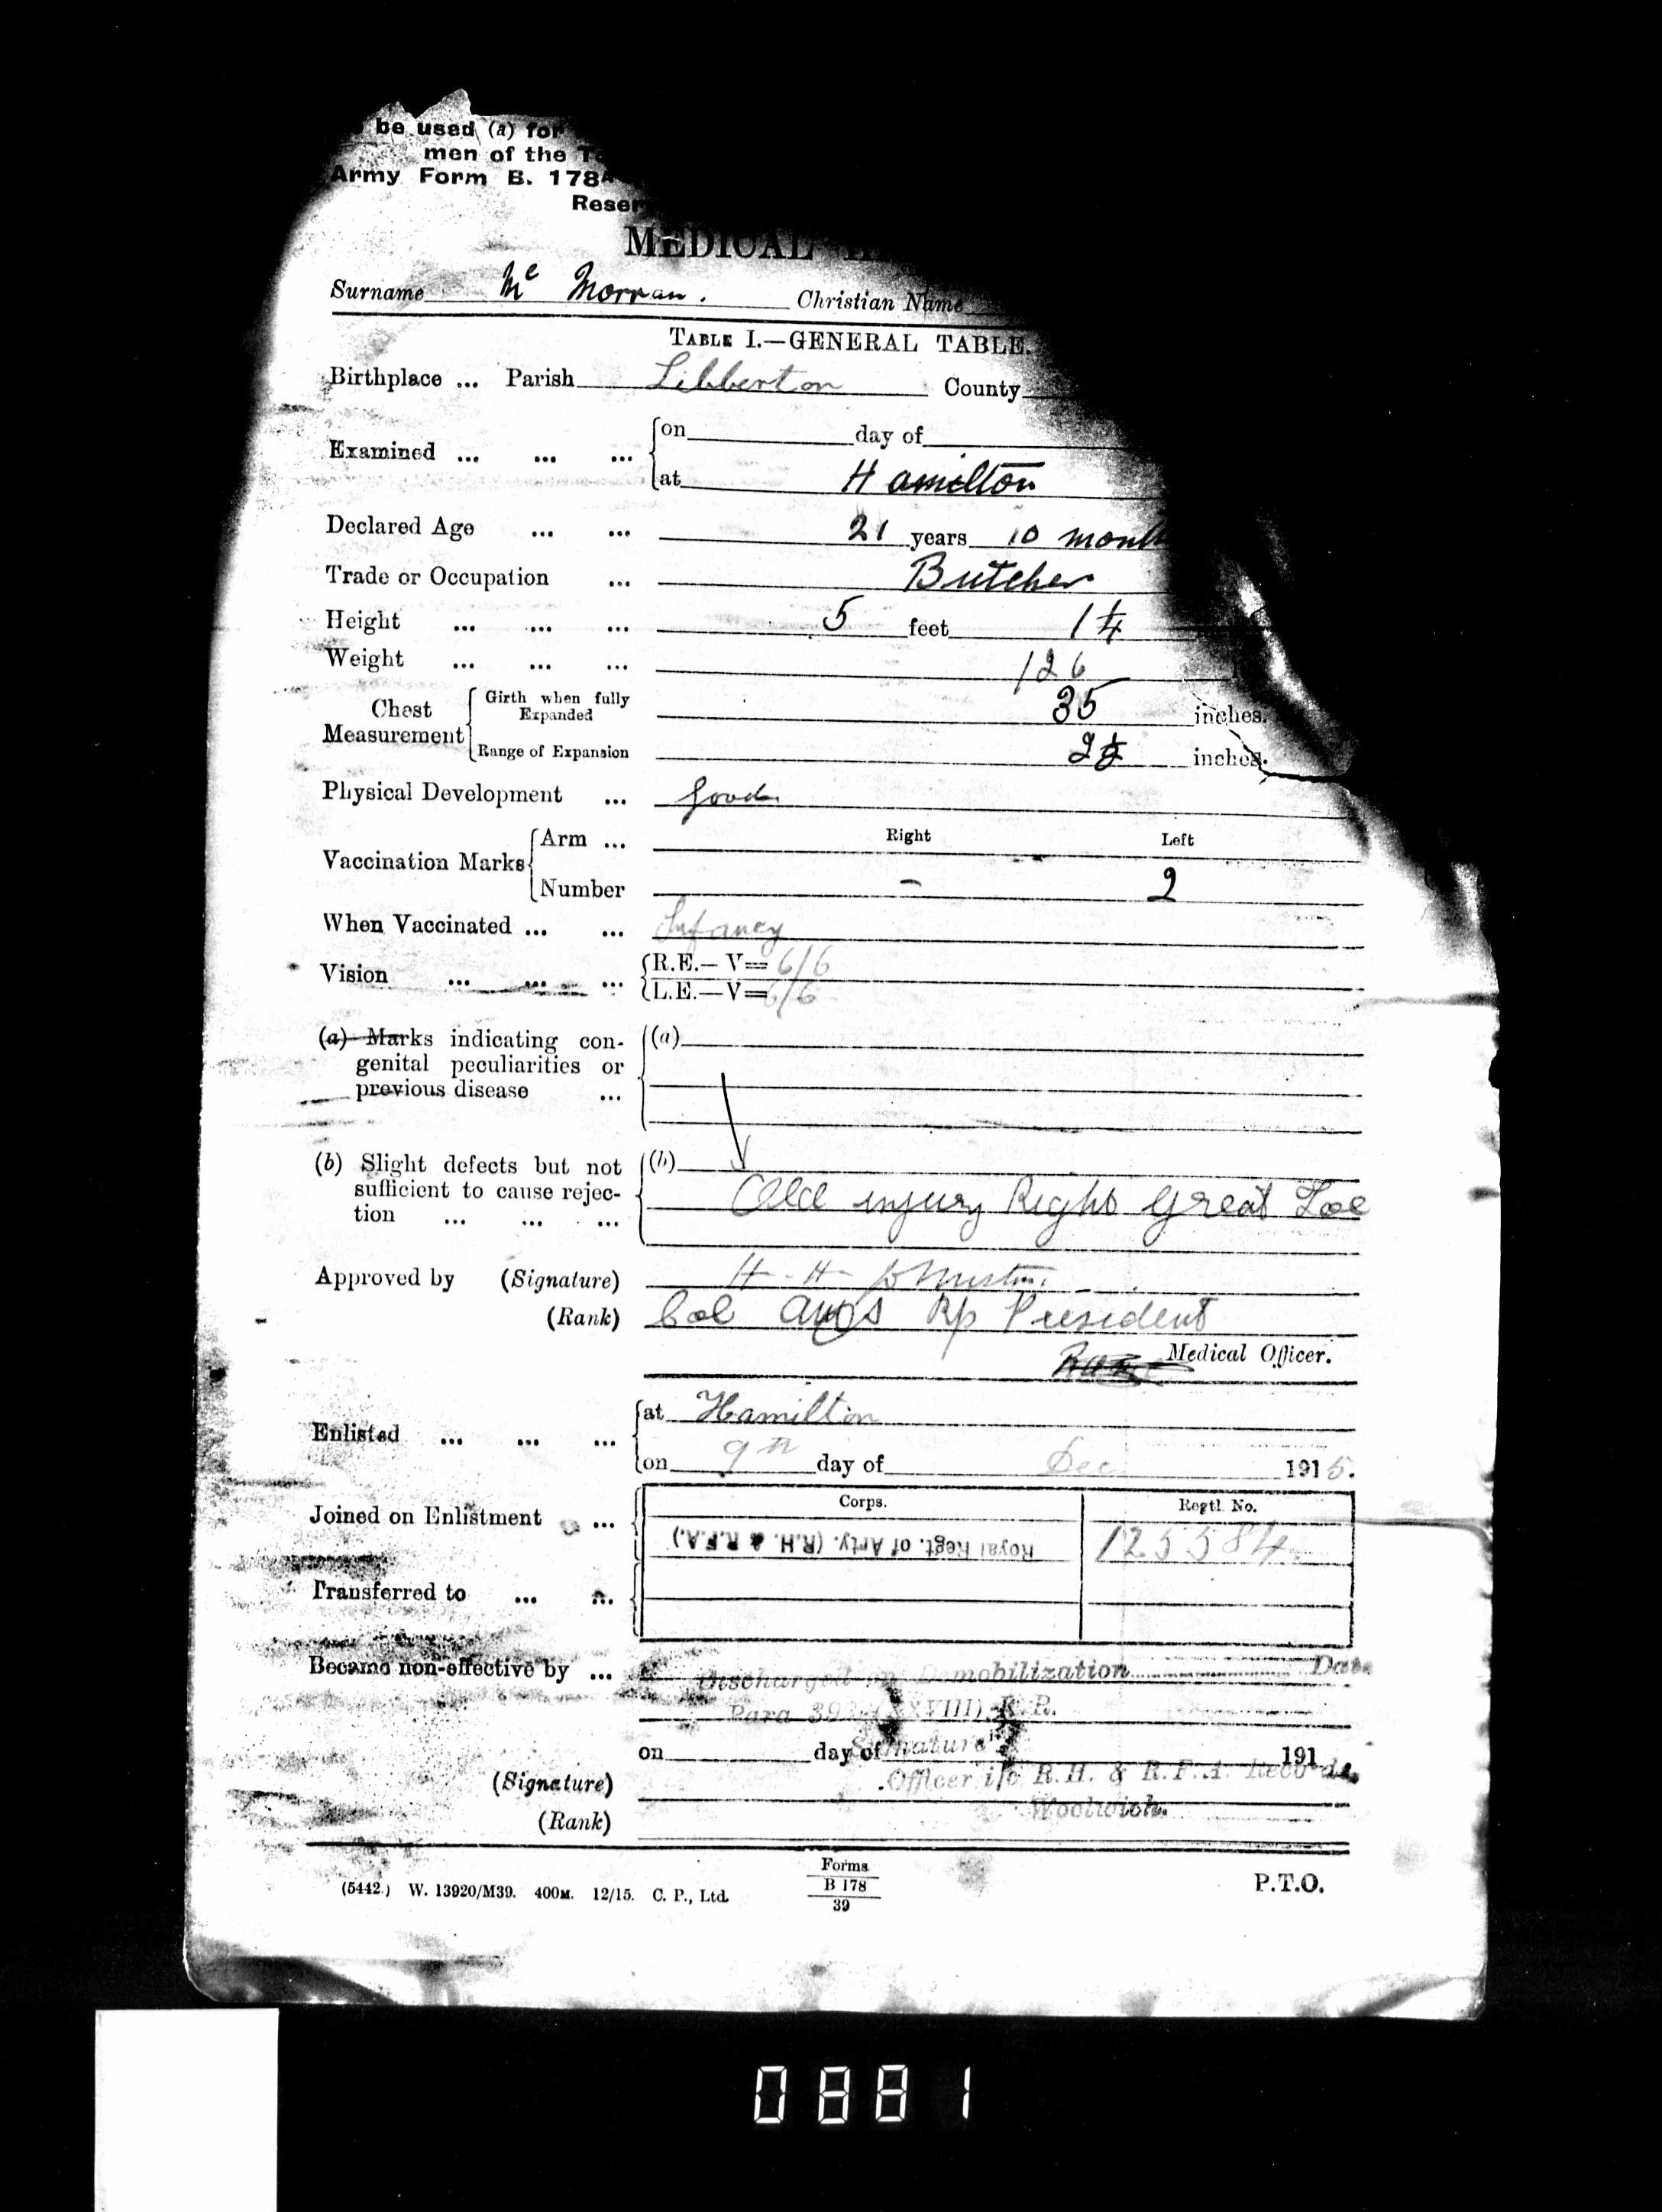 be used (a) for
men of the
Army Form B. 178A
Reser
MEDICAL
Surname Mc Morran. Christian Name
TABLE I.—GENERAL TABLE.
Birthplace ... Parish Libberton County
Examined ... ... ... on day of
at Hamilton
Declared Age ... ... 21 years 10 month
Trade or Occupation ... Butcher
Height ... ... ... 5 feet 1¼
Weight ... ... ... 126
Chest Measurement Girth when fully Expanded 35 inches.
Range of Expansion 2½ inches.
Physical Development ... Good
Right Left
Vaccination Marks Arm ...
Number - 2
When Vaccinated ... ... Infancy
Vision ... ... ... R.E.—V= 6/6
L.E.—V= 6/6
(a) Marks indicating con- (a)
genital peculiarities or
previous disease ...
(b) Slight defects but not (b)
sufficient to cause rejec- Old injury Right Great Toe
tion ... ... ...
Approved by (Signature) H. H. Johnston
(Rank) Col AMS President
Medical Officer.
Enlisted ... ... ... at Hamilton
on 9th day of Dec 1915.
Corps. Regtl. No.
Joined on Enlistment ... Royal Regt. of Arty. (R.H. & R.F.A.) 125584
Transferred to ... ...
Became non-effective by ... Discharged on Demobilization Date
Para 392 (XXVIII). K.R.
on day of Signature 191
(Signature) Officer i/c R.H. & R.F.A. Records,
Woolwich.
(Rank)
(5442.) W. 13920/M39. 400M. 12/15. C. P., Ltd. Forms B 178 39 P.T.O.
0881